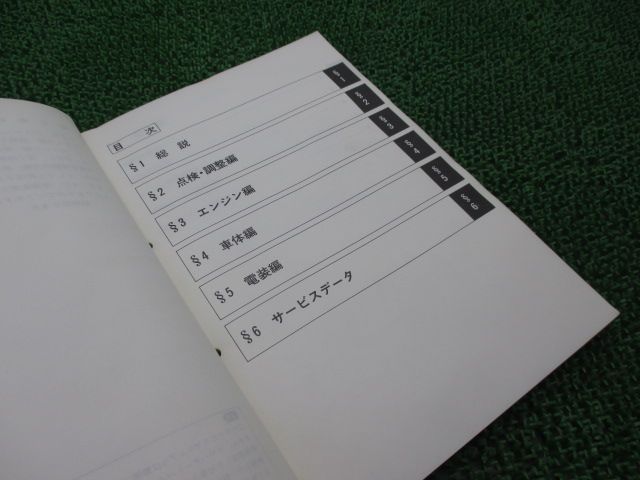 目 次
§1 総説 §1
§2 点検・調整編 §2
§3 エンジン編 §3
§4 車体編 §4
§5 電装編 §5
§6 サービスデータ §6